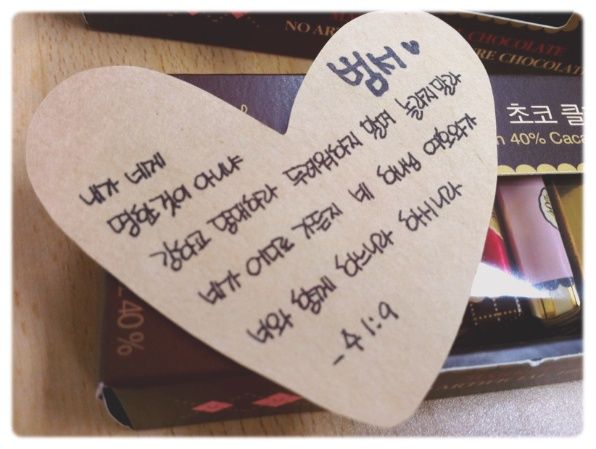 CHOCOLATE
NO AR
RE CHOCOLATE
초코 클
40% Caca
내가 네게
명령한 것이 아니냐
강하고 담대하라 두려워하지 말며 놀라지말라
네가 어디로 가든지 네 하나님 여호와가
너와 함께 하느니라 하시니라
- 수 1:9
40%